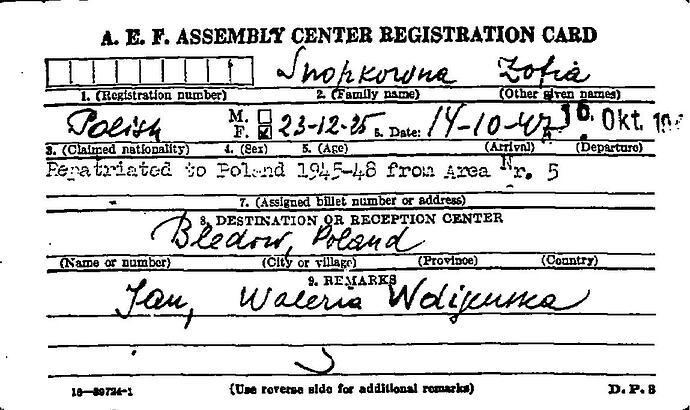 A. E. F. ASSEMBLY CENTER REGISTRATION CARD
Snopkowna Zofia
1. (Registration number) 2. (Family name) (Other given names)
Polish M. F. 23-12-25 5. Date: 14-10-47 16. Okt. 194
3. (Claimed nationality) 4. (Sex) 5. (Age) (Arrival) (Departure)
Repatriated to Poland 1945-48 from Area Nr. 5
7. (Assigned billet number or address)
8. DESTINATION OR RECEPTION CENTER
Bledow, Poland
(Name or number) (City or village) (Province) (Country)
9. REMARKS
Jan, Waleria
16-39724-1 (Use reverse side for additional remarks) D.P. 3